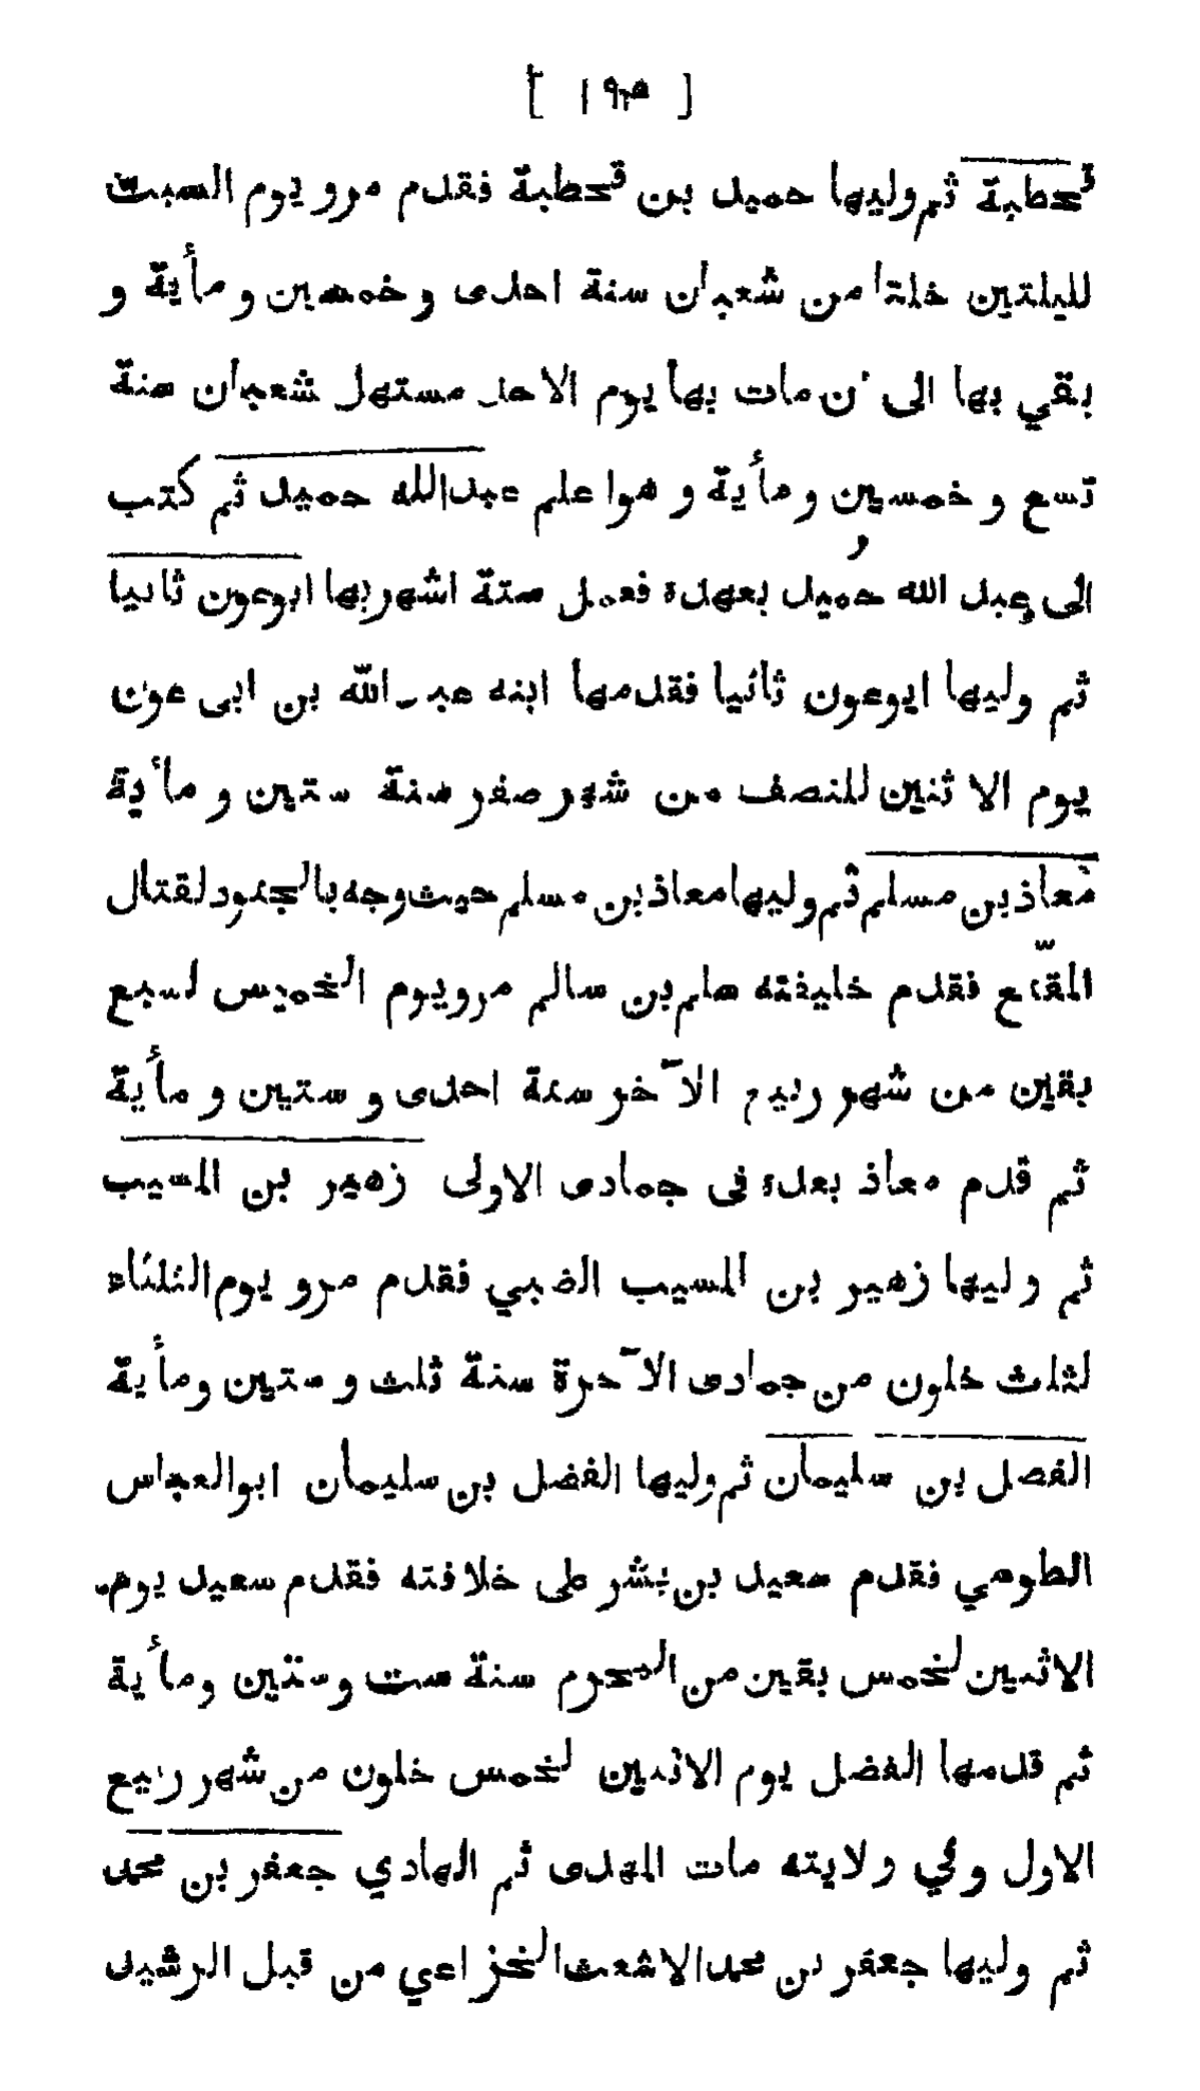 [ ١٩٣ ]
قحطبة ثم وليها حميد بن قحطبة فقدم مرو يوم السبت
لليلتين خلتا من شعبان سنة احدى و خمسين و مأية و
بقي بها الى ن مات بها يوم الاحد مستهل شعبان سنة
تسع و خمسين و مأية و هوا علم عبدالله حميد ثم كتب
الى عبد الله حميد بعهده فعمل ستة اشهر بها ابوعون ثانيا
ثم وليها ابوعون ثانيا فقدمها ابنه عبد الله بن ابى عون
يوم الاثنين للنصف من شهر صفر سنة ستين و مأية
معاذ بن مسلم ثم وليها معاذ بن مسلم حيث وجه بالجنود لقتال
المقنع فقدم خليفته سلم بن سالم مرو يوم الخميس لسبع
بقين من شهر ربيع الآخر سنة احدى و ستين و مأية
ثم قدم معاذ بعده فى جمادى الاولى زهير بن المسيب
ثم وليها زهير بن المسيب الضبي فقدم مرو يوم الثلثاء
لثلث خلون من جمادى الآخرة سنة ثلث و ستين ومأية
الفضل بن سليمان ثم وليها الفضل بن سليمان ابوالعباس
الطوسي فقدم سعيد بن بشر على خلافته فقدم سعيد يوم
الاثنين لخمس بقين من المحرم سنة ست وستين ومأية
ثم قدمها الفضل يوم الاثنين لخمس خلون من شهر ربيع
الاول وفي ولايته مات المهدى ثم الهادي جعفر بن محمد
ثم وليها جعفر بن محمد الاشعث الخزاعي من قبل الرشيد